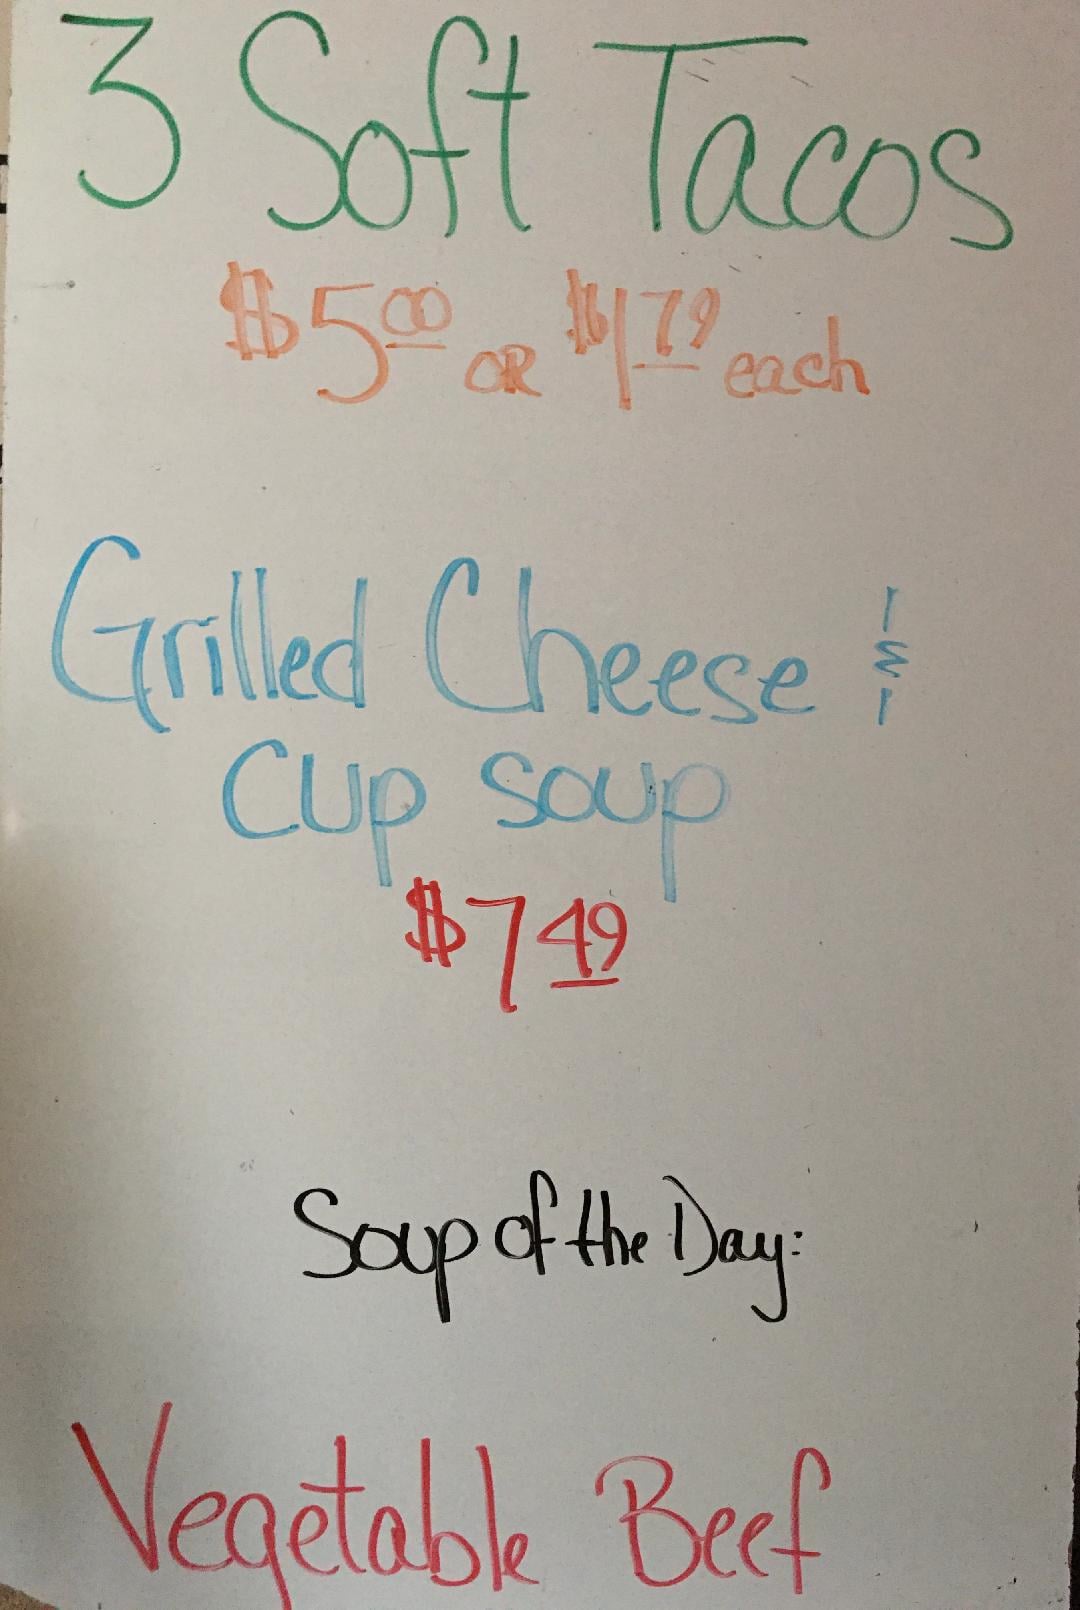 3 Soft Tacos
$5.00 OR $1.79 each
Grilled Cheese &
Cup soup
$7.49
Soup of the Day:
Vegetable Beef